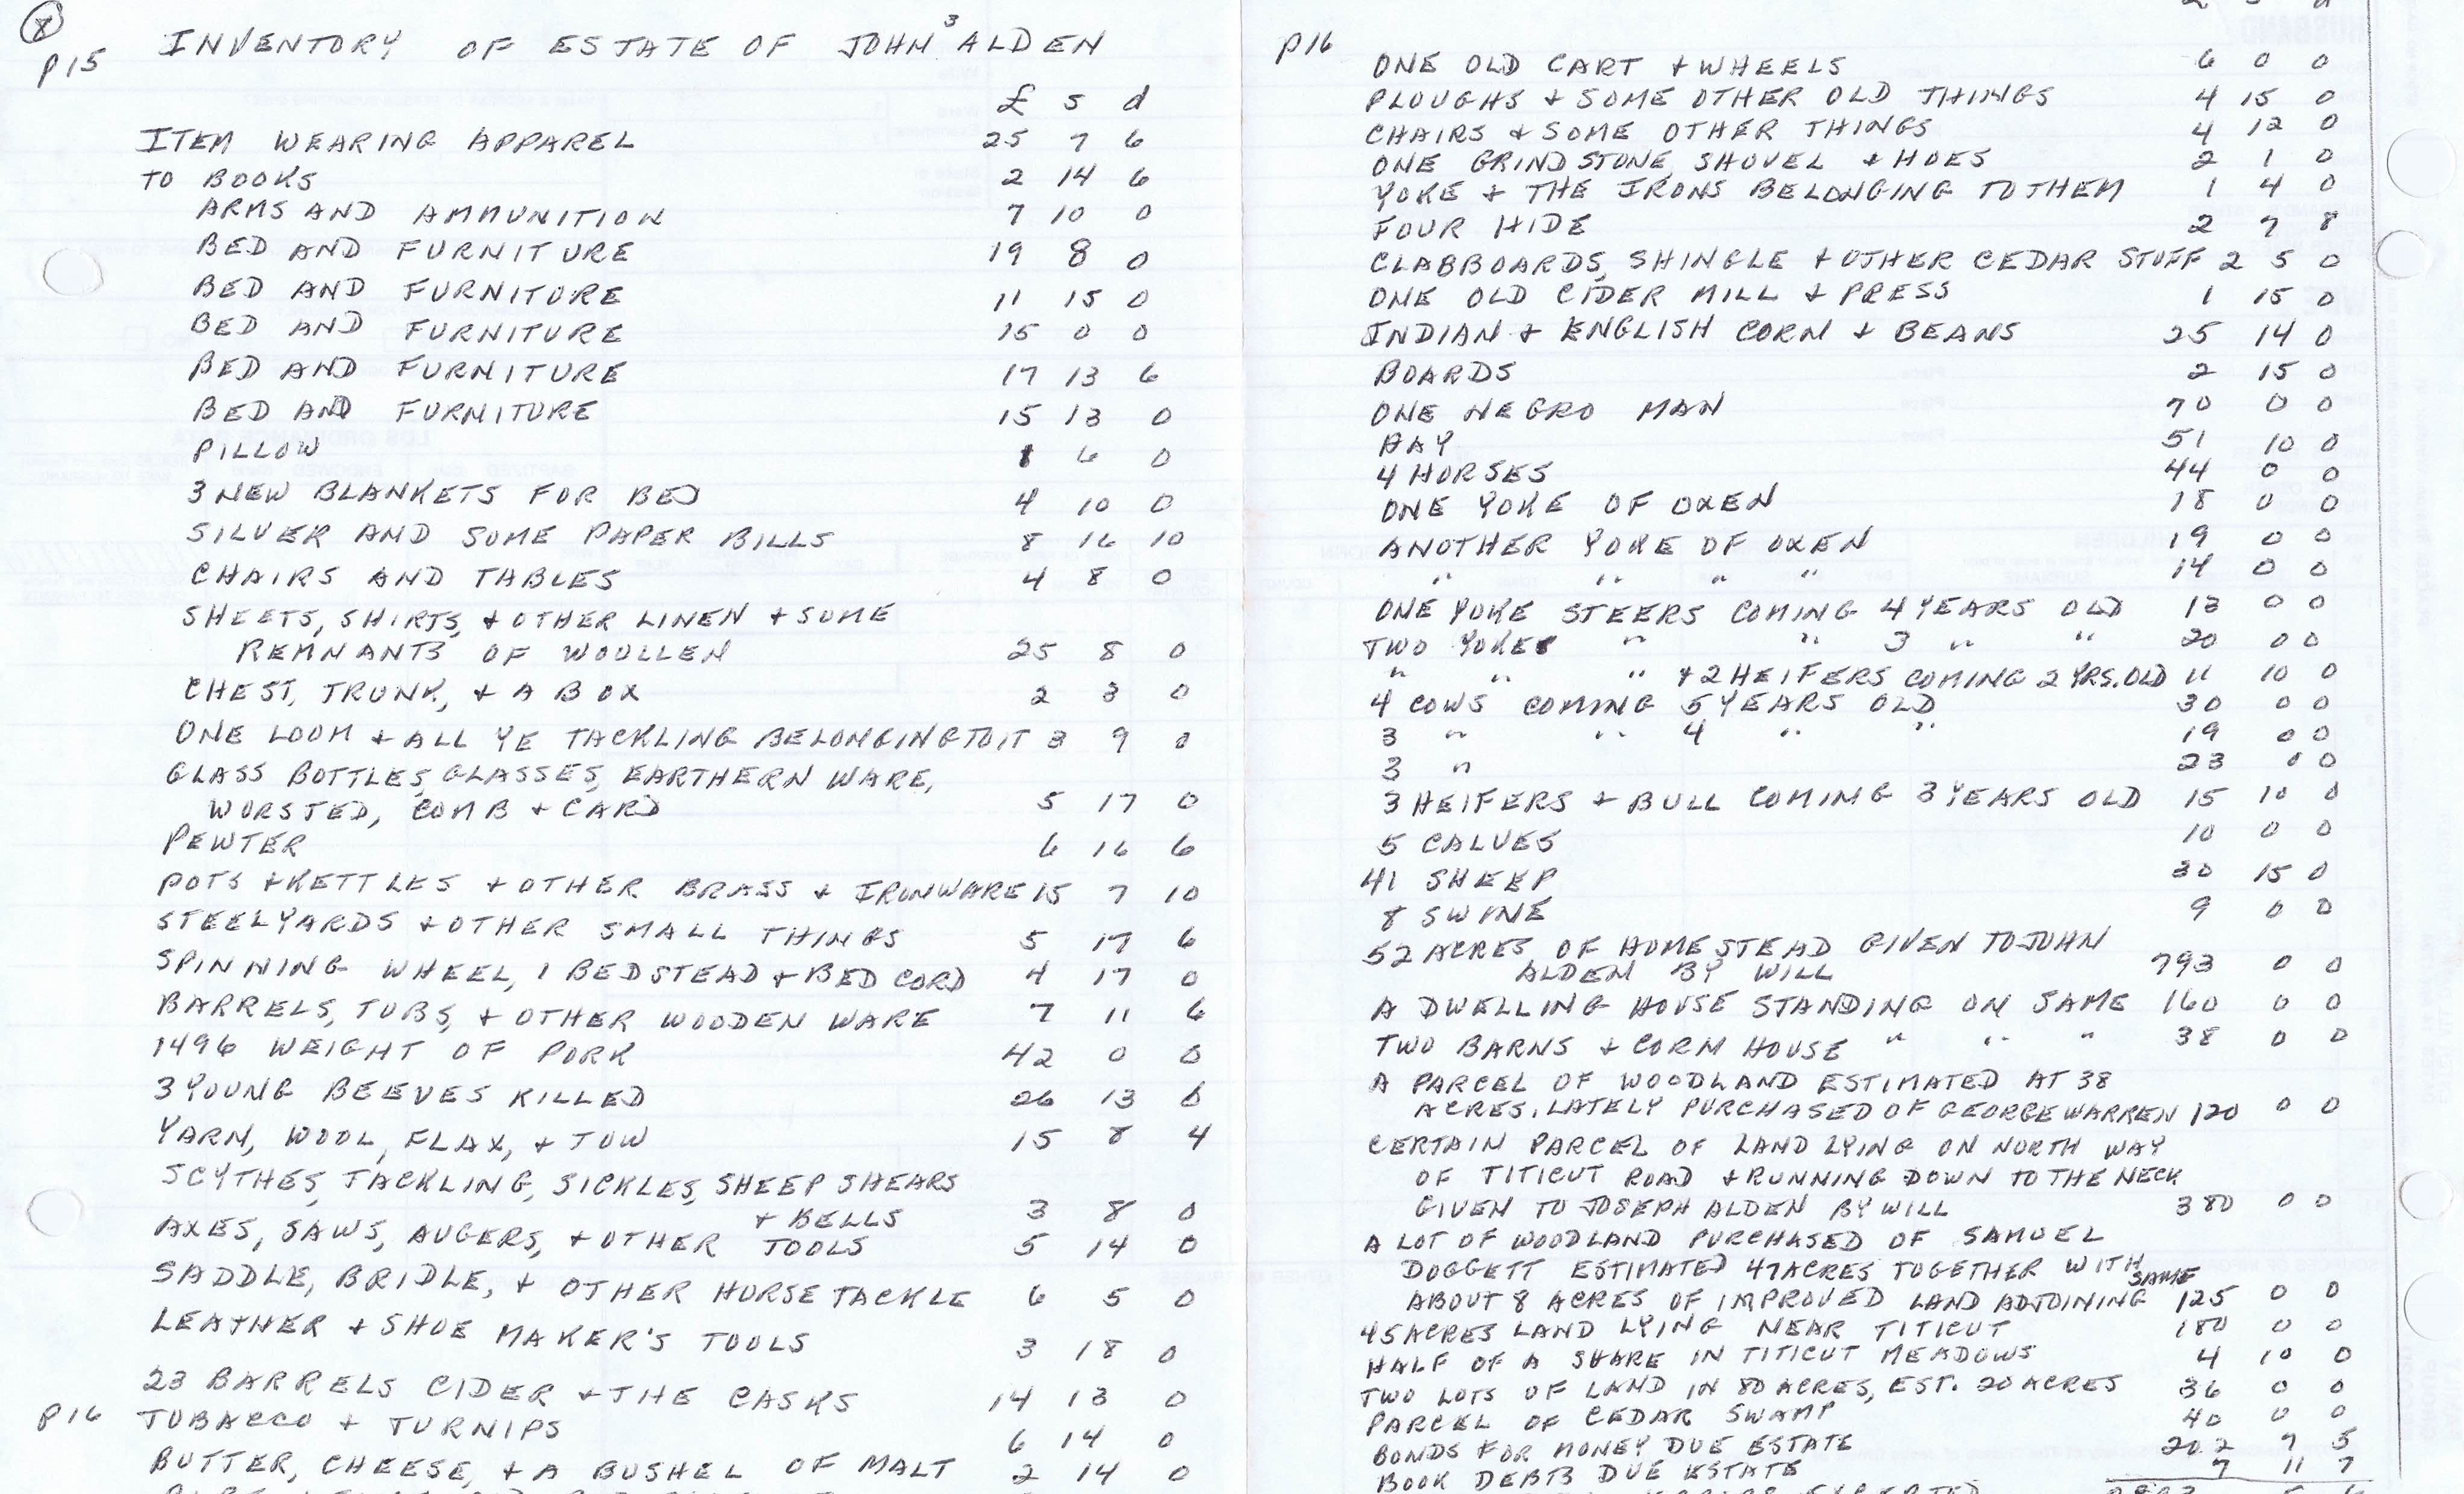 8
P15 INVENTORY OF ESTATE OF JOHN³ ALDEN
£ s d
ITEM WEARING APPAREL 25 7 6
TO BOOKS 2 14 6
ARMS AND AMMUNITION 7 10 0
BED AND FURNITURE 19 8 0
BED AND FURNITURE 11 15 0
BED AND FURNITURE 15 0 0
BED AND FURNITURE 17 13 6
BED AND FURNITURE 15 13 0
PILLOW 1 6 0
3 NEW BLANKETS FOR BED 4 10 0
SILVER AND SOME PAPER BILLS 8 16 10
CHAIRS AND TABLES 4 8 0
SHEETS, SHIRTS, + OTHER LINEN + SOME
REMNANTS OF WOOLLEN 25 8 0
CHEST, TRUNK, + A BOX 2 3 0
ONE LOOM + ALL YE TACKLING BELONGING TO IT 3 9 0
GLASS BOTTLES, GLASSES, EARTHERN WARE,
WORSTED, COMB + CARD 5 17 0
PEWTER 6 16 6
POTS + KETTLES + OTHER BRASS + IRONWARE 15 7 10
STEELYARDS + OTHER SMALL THINGS 5 17 6
SPINNING WHEEL, 1 BEDSTEAD + BED CORD 4 17 0
BARRELS, TUBS, + OTHER WOODEN WARE 7 11 6
1496 WEIGHT OF PORK 42 0 0
3 YOUNG BEEVES KILLED 26 13 6
YARN, WOOL, FLAX, + TOW 15 8 4
SCYTHES, TACKLING, SICKLES, SHEEP SHEARS
+ BELLS 3 8 0
AXES, SAWS, AUGERS, + OTHER TOOLS 5 14 0
SADDLE, BRIDLE, + OTHER HORSE TACKLE 6 5 0
LEATHER + SHOE MAKER'S TOOLS 3 18 0
23 BARRELS CIDER + THE CASKS 14 13 0
P16 TOBACCO + TURNIPS 6 14 0
BUTTER, CHEESE, + A BUSHEL OF MALT 2 14 0
P16
ONE OLD CART + WHEELS 6 0 0
PLOUGHS + SOME OTHER OLD THINGS 4 15 0
CHAIRS + SOME OTHER THINGS 4 12 0
ONE GRINDSTONE, SHOVEL + HOES 2 1 0
YOKE + THE IRONS BELONGING TO THEM 1 4 0
FOUR HIDE 2 7 8
CLABBOARDS, SHINGLE + OTHER CEDAR STUFF 2 5 0
ONE OLD CIDER MILL + PRESS 1 15 0
INDIAN + ENGLISH CORN + BEANS 25 14 0
BOARDS 2 15 0
ONE NEGRO MAN 70 0 0
HAY 51 10 0
4 HORSES 44 0 0
ONE YOKE OF OXEN 18 0 0
ANOTHER YOKE OF OXEN 19 0 0
" " " " 14 0 0
ONE YOKE STEERS COMING 4 YEARS OLD 13 0 0
TWO YOKES " " 3 " " 20 0 0
" " " + 2 HEIFERS COMING 2 YRS. OLD 11 10 0
4 COWS COMING 5 YEARS OLD 30 0 0
3 " " 4 " " 19 0 0
3 " 23 0 0
3 HEIFERS + BULL COMING 3 YEARS OLD 15 10 0
5 CALVES 10 0 0
41 SHEEP 30 15 0
8 SWINE 9 0 0
52 ACRES OF HOMESTEAD GIVEN TO JOHN
ALDEN BY WILL 793 0 0
A DWELLING HOUSE STANDING ON SAME 160 0 0
TWO BARNS + CORN HOUSE " " " 38 0 0
A PARCEL OF WOODLAND ESTIMATED AT 38
ACRES, LATELY PURCHASED OF GEORGE WARREN 120 0 0
CERTAIN PARCEL OF LAND LYING ON NORTH WAY
OF TITICUT ROAD + RUNNING DOWN TO THE NECK
GIVEN TO JOSEPH ALDEN BY WILL 380 0 0
A LOT OF WOODLAND PURCHASED OF SAMUEL
DOGGETT ESTIMATED 47 ACRES TOGETHER WITH
ABOUT 8 ACRES OF IMPROVED LAND ADJOINING SAME 125 0 0
45 ACRES LAND LYING NEAR TITICUT 180 0 0
HALF OF A SHARE IN TITICUT MEADOWS 4 10 0
TWO LOTS OF LAND IN 80 ACRES, EST. 20 ACRES 36 0 0
PARCEL OF CEDAR SWAMP 40 0 0
BONDS FOR MONEY DUE ESTATE 202 7 5
BOOK DEBTS DUE ESTATE 7 11 7